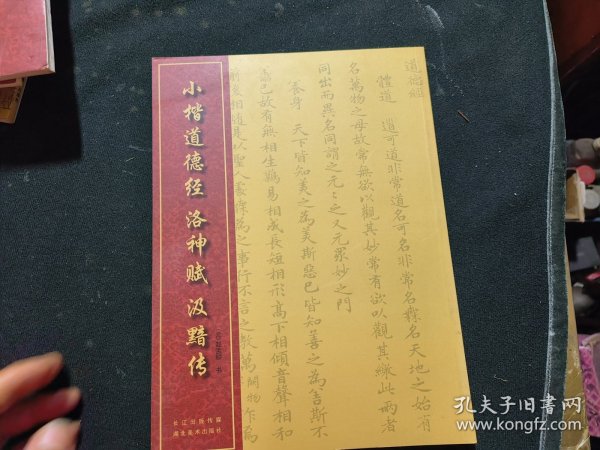 小楷道德经 洛神赋 汲黯传
书
长江出版传媒
湖北美术出版社
道德經
體道 道可道非常道名可名非常名無名天地之始有
名萬物之母故常無欲以觀其妙常有欲以觀其徼此兩者
同出而異名同謂之元元之又元眾妙之門
養身 天下皆知美之為美斯惡已皆知善之為善斯不
善已故有無相生難易相成長短相形高下相傾音聲相和
前後相隨是以聖人處無為之事行不言之教萬物作為
孔夫子旧书网
www.kongfz.com